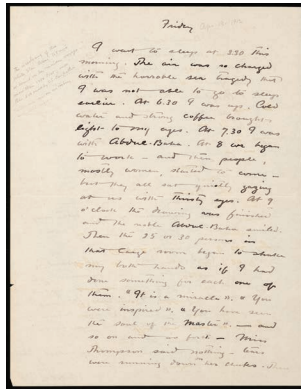 Friday
I went to sleep at 2.30 this
morning. The air was so charged
with the horrable sea tragedy that
I was not able to go to sleep
earlier. At 6.30 I was up. Cold
water and strong coffee brought
light to my eyes. At 7.30 I was
with Abdul-Baha. At 8 we began
to work — and then people,
mostly women, started to come —
but they all sat quietly gazing
at us with thirsty eyes. At 9
o'clock the drawing was finished
and the noble Abdul-Baha smiled.
Then the 25 or 30 persons in
that large room began to shake
my both hands as if I had
done something for each one of
them. "It is a miracle". "You
were inspired". "You have seen
the soul of the Master". — and
so on and so forth — Miss
Thompson said nothing — tears
were running down her cheeks.